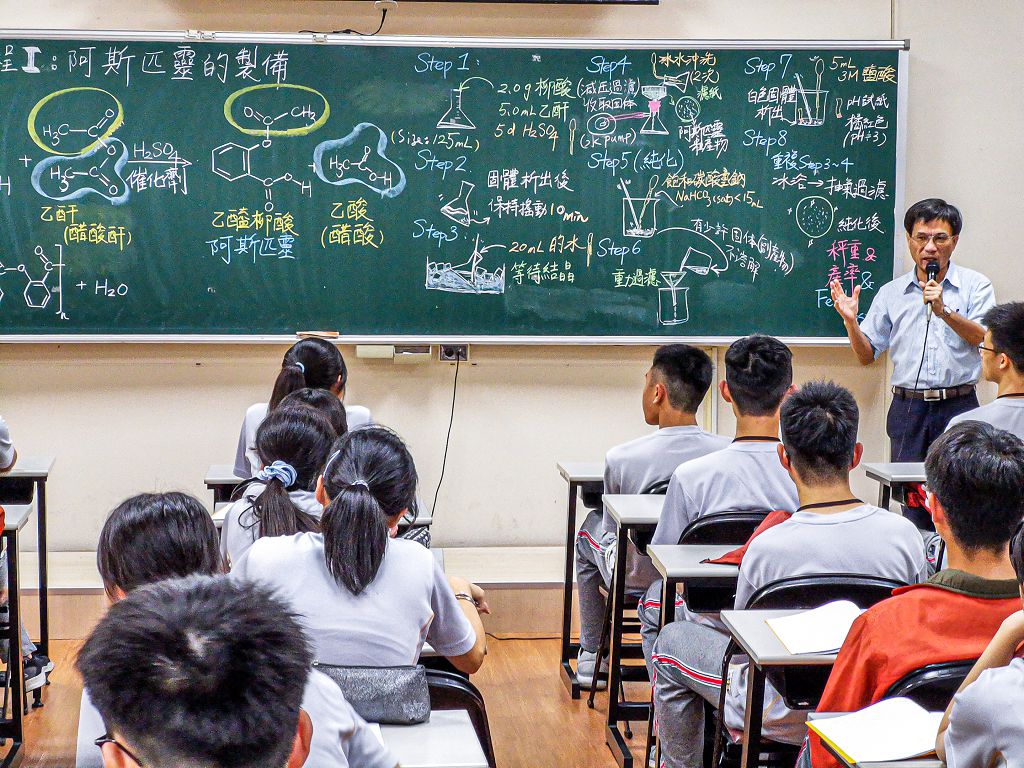 程I:阿斯匹靈的製備
H₃C
O
CH₃
+
H₂SO₄
催化劑
乙酐
(醋酸酐)
乙醯柳酸
阿斯匹靈
乙酸
(醋酸)
+ H₂O
n
Step 1:
2.0g 柳酸
5.0mL 乙酐
5d H₂SO₄
(Size:125mL)
Step2.
固體析出後
保持搖動10min
Step3.
20mL 的水
等待結晶
Step4
(減壓過濾)
收取固体
冰水沖洗
(2次)
濾紙
阿斯匹靈
粗產物
Step5 (純化)
飽和碳酸氫鈉
NaHCO₃(sat)<15mL
有少許固体(副產物)
不溶解
Step6
重力過濾
Step7
白色固體
析出
5mL
3M 鹽酸
pH試紙
橘紅色
(pH=3)
Step8
重複Step3~4
冰浴→抽氣過濾
純化後
秤重&
產率&
Fe